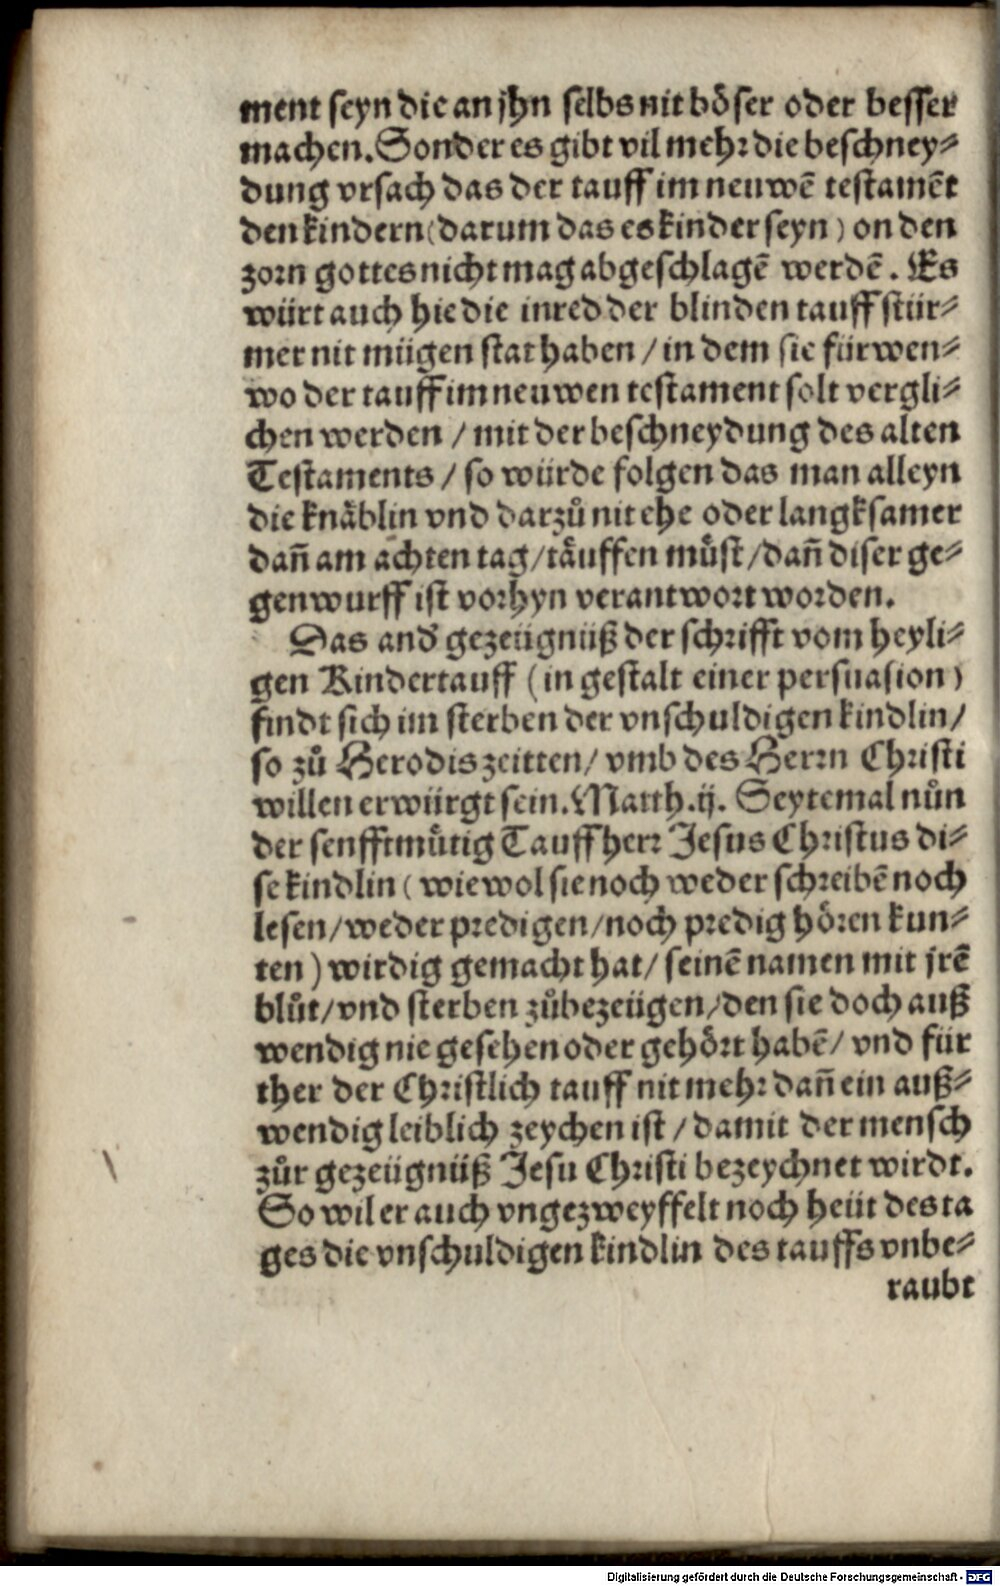 ment seyn die an jhn selbs nit böser oder besser
machen. Sonder es gibt vil mehr die beschney⸗
dung vrsach das der tauff im neuwē testamēt
den kindern (darum das es kinder seyn) on den
zorn gottes nicht mag abgeschlagē werdē. Es
würt auch hie die inred der blinden tauff stür⸗
mer nit mügen stat haben / in dem sie fürwen⸗
wo der tauff im neuwen testament solt vergli⸗
chen werden / mit der beschneydung des alten
Testaments / so würde folgen das man alleyn
die knäblin vnd darzů nit ehe oder langksamer
dañ am achten tag / täuffen můst / dañ diser ge⸗
genwurff ist vorhyn verantwort worden.
Das and̕ gezeügnüß der schrifft vom heyli⸗
gen Kindertauff (in gestalt einer persuasion)
findt sich im sterben der vnschuldigen kindlin /
so zů Herodis zeitten / vmb des Herrn Christi
willen erwürgt sein. Matth. ij. Seytemal nůn
der senfftmůtig Tauffherr Jesus Christus di⸗
se kindlin (wiewol sie noch weder schreibē noch
lesen / weder predigen / noch predig hören kun⸗
ten) wirdig gemacht hat / seinē namen mit jrē
blůt / vnd sterben zůbezeügen / den sie doch auß
wendig nie gesehen oder gehört habē / vnd für
ther der Christlich tauff nit mehr dañ ein auß⸗
wendig leiblich zeychen ist / damit der mensch
zůr gezeügnüß Jesu Christi bezeychnet wirdt.
So wil er auch vngezweyffelt noch heüt des ta
ges die vnschuldigen kindlin des tauffs vnbe⸗
raubt
Digitalisierung gefördert durch die Deutsche Forschungsgemeinschaft - DFG